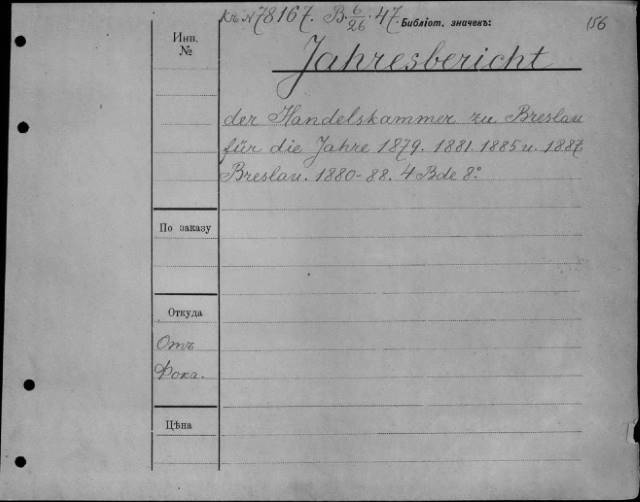 Кн. № 78167. В. 6/26. 47. Библіот. значекъ: 156
Инв. №
Jahresbericht
der Handelskammer zu Breslau
für die Jahre 1879. 1881. 1885 u. 1887.
Breslau. 1880-88. 4 Bde 8º
По заказу
Откуда
Отъ
Фока.
Цѣна